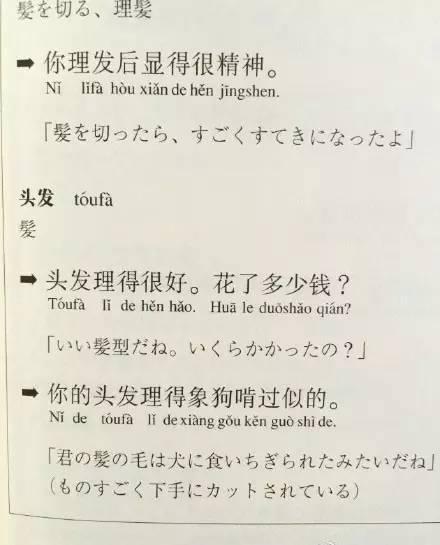 髪を切る、理髪
➡ 你理发后显得很精神。
Nǐ lǐfà hòu xiǎn de hěn jīngshen.
「髪を切ったら、すごくすてきになったよ」
头发 tóufà
髪
➡ 头发理得很好。花了多少钱？
Tóufà lǐ de hěn hǎo. Huā le duōshǎo qián?
「いい髪型だね。いくらかかったの？」
➡ 你的头发理得象狗啃过似的。
Nǐ de tóufà lǐ de xiàng gǒu kěn guò shì de.
「君の髪の毛は犬に食いちぎられたみたいだね」
（ものすごく下手にカットされている）